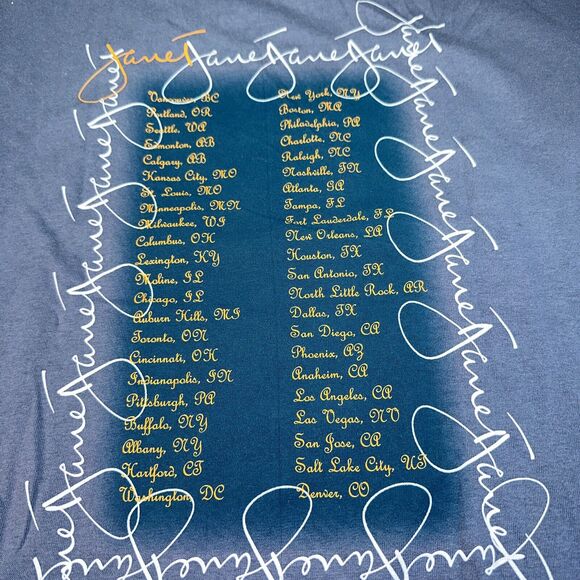 Janet Janet Janet Janet Janet
Vancouver, BC
Portland, OR
Seattle, WA
Edmonton, AB
Calgary, AB
Kansas City, MO
St. Louis, MO
Minneapolis, MN
Milwaukee, WI
Columbus, OH
Lexington, KY
Moline, IL
Chicago, IL
Auburn Hills, MI
Toronto, ON
Cincinnati, OH
Indianapolis, IN
Pittsburgh, PA
Buffalo, NY
Albany, NY
Hartford, CT
Washington, DC
New York, NY
Boston, MA
Philadelphia, PA
Charlotte, NC
Raleigh, NC
Nashville, TN
Atlanta, GA
Tampa, FL
Fort Lauderdale, FL
New Orleans, LA
Houston, TX
San Antonio, TX
North Little Rock, AR
Dallas, TX
San Diego, CA
Phoenix, AZ
Anaheim, CA
Los Angeles, CA
Las Vegas, NV
San Jose, CA
Salt Lake City, UT
Denver, CO
Janet
Janet
Janet
Janet
Janet
Janet
Janet
Janet
Janet Janet Janet Janet Janet